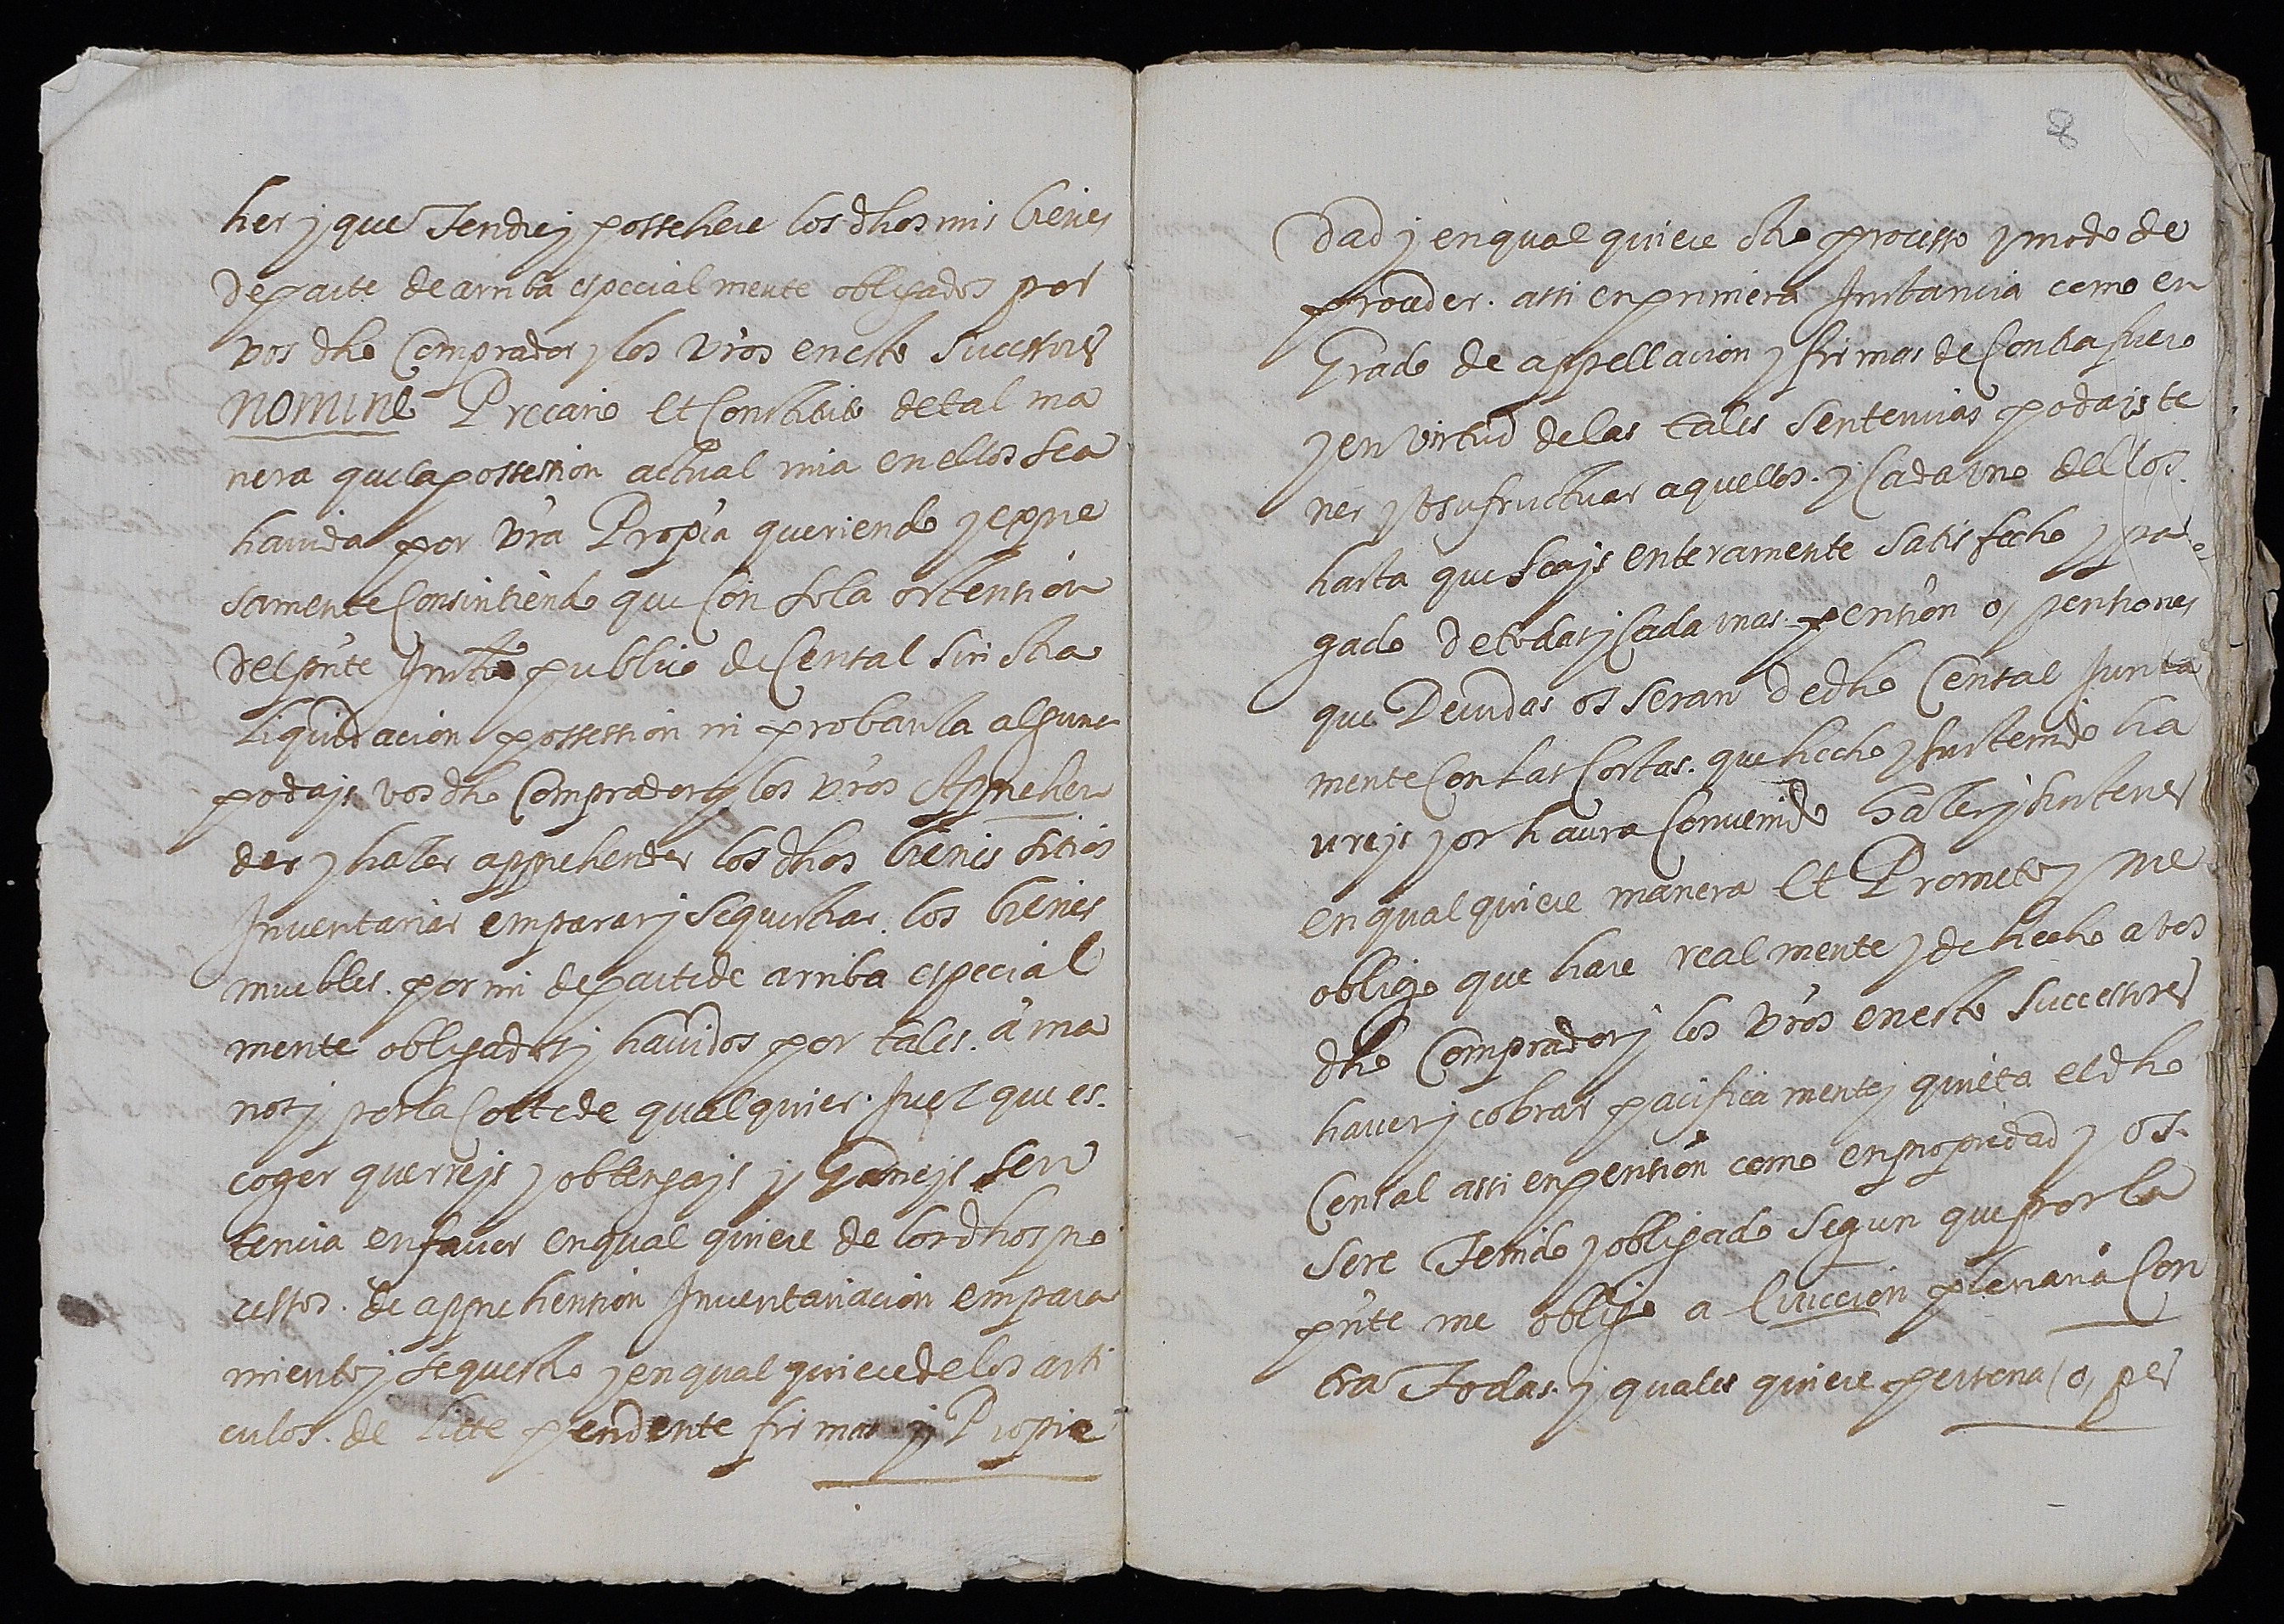 her y que Tendre y possehere los dhos mis bienes
de parte de arriba especialmente obligados por
vos dho Comprador y los vr̃os en esto Successores
NOMINE Precario et Constituto de tal ma
nera que la possession actual mia en ellos sea
hauida por vr̃a Propia queriendo y expre
samente Consintiendo que Con sola ostension
del pn̄te Instr̄o publico de Censal sin otra
liquidacion possession ni probanza alguna
podays vos dho Comprador y los vr̃os Apprehen
der y hazer apprehender los dhos bienes sitios
Inuentariar emparar y sequestrar los bienes
muebles por mi de parte de arriba especial
mente obligados y hauidos por tales. à ma
nos y por la Corte de qualquier Juez que es
coger querreys y obtengays y Ganeys sen
tencia en fauor en qual quiere de los dhos pro
cessos de apprehension Inuentariacion empara
miento y sequestro y en qual quiere de los arti
culos de litte pendente firmas y Propie
8
dad y en qual quiere otro processo y modo de
proceder. assi en primera Instancia como en
Grado de appellacion y firmas de Contrafuero
y en virtud de las tales sentencias podays te
ner y vsufructuar aquellos y Cada vno dellos
hasta que seays enteramente satisfecho y pa
gado de todas y Cada vnas pension o, pensiones
que Deuidas os seran de dho Censal Junta
mente Con las Costas que hecho y sustenido ha
ureys y os haura Conuenido hazer y sustener
en qual quiere manera et Prometo y me
obligo que hare realmente y de hecho a vos
dho Comprador y los vr̃os en esto Successores
hauer y cobrar pacifica mente y quieta el dho
Censal assi en pension como en propiedad y os
sere Tenido y obligado segun que por la
pn̄te me obligo a Euiccion plenaria Con
tra Todas y quales quiere persona o, per